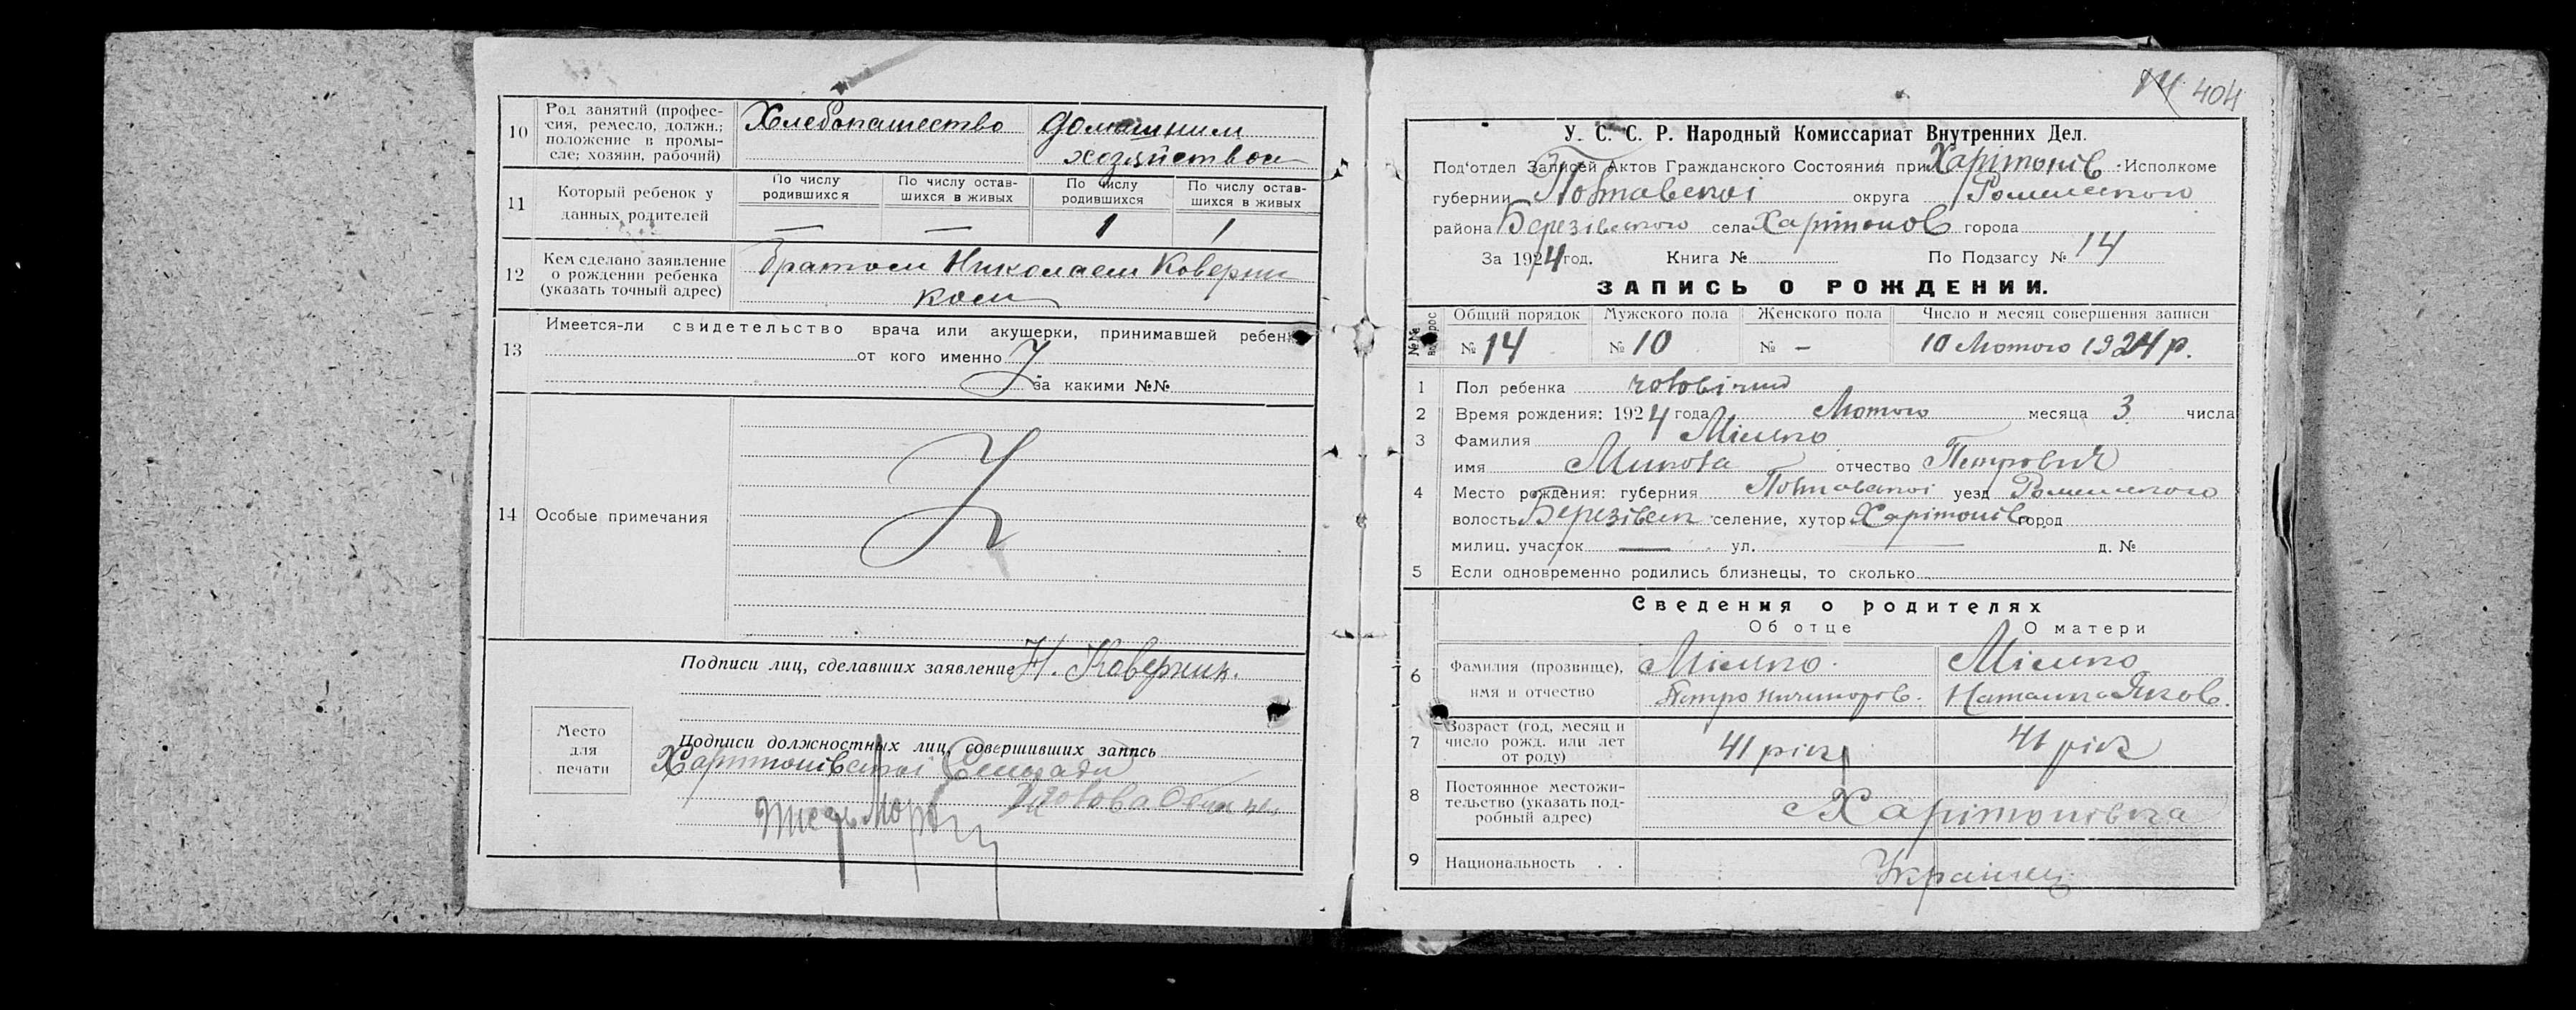 10
Род занятий (профес-
сия, ремесло, должн.;
положение в промы-
сле; хозяин, рабочий)
Хлебопашество
домашним
хозяйством
11
Который ребенок у
данных родителей
По числу
родившихся
По числу остав-
шихся в живых
По числу
родившихся
По числу остав-
шихся в живых
—
—
1
1
12
Кем сделано заявление
о рождении ребенка
(указать точный адрес)
братом Николаем Коверни
ком
13
Имеется-ли свидетельство врача или акушерки, принимавшей ребенка
от кого именно
за какими №№
14
Особые примечания
Подписи лиц, сделавших заявление Н. Коверник.
Место
для
печати
Подписи должностных лиц, совершивших запись
Харітонівської Сельради
Голова
14 404
У. С. С. Р. Народный Комиссариат Внутренних Дел.
Под'отдел Записей Актов Гражданского Состояния при Харітонів Исполкоме
губернии Полтавської округа Роменського
района Березівського села Харітонов города
За 1924 год. Книга № По Подзагсу № 14
ЗАПИСЬ О РОЖДЕНИИ.
№№ вопрос
Общий порядок
Мужского пола
Женского пола
Число и месяц совершения записи
№ 14
№ 10
№ -
10 Лютого 1924 р.
1 Пол ребенка чоловічий
2 Время рождения: 1924 года Лютого месяца 3 числа
3 Фамилия
имя Микола отчество Петрович
4 Место рождения: губерния Полтавської уезд Роменського
волость Березівськ селение, хутор Харітонів город
милиц. участок — ул. — д. №
5 Если одновременно родились близнецы, то сколько
Сведения о родителях
Об отце
О матери
6
Фамилия (прозвище),
имя и отчество
Петро Ничипоров.
Наталка Яков.
7
Возраст (год, месяц и
число рожд. или лет
от роду)
41 рік
41 рік
8
Постоянное местожи-
тельство (указать под-
робный адрес)
Харітонівка
9
Национальность . .
Українец